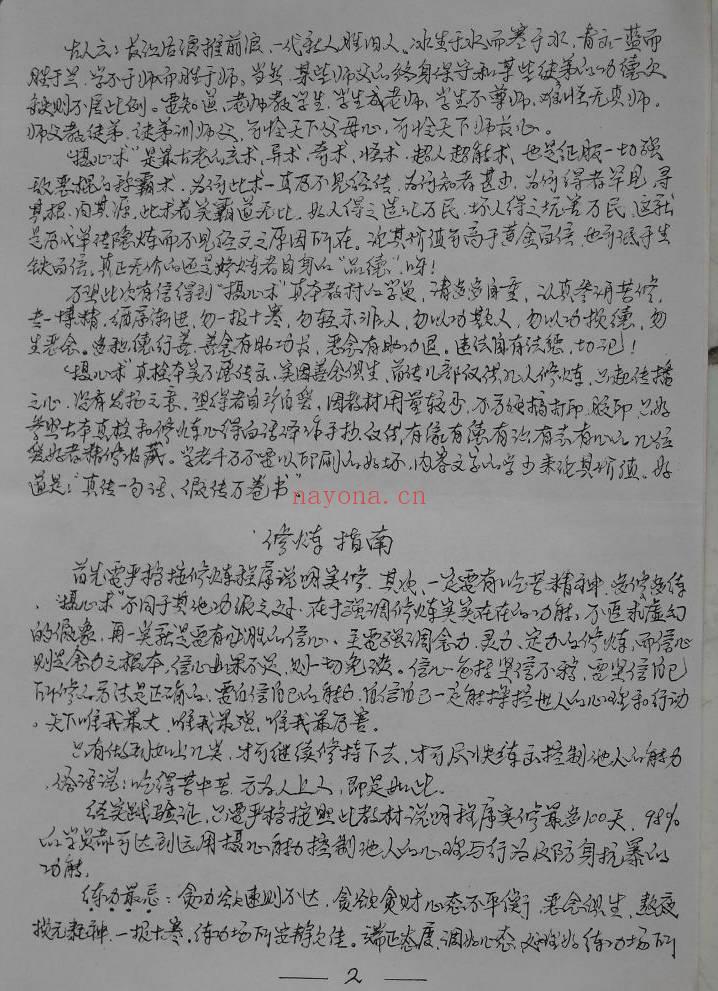 古人云：长江后浪推前浪，一代新人胜旧人。冰生于水而寒于水，青出于蓝而
胜于兰，学不于师而胜于师。当然，某些师父的终身保守和某些徒弟的功德欠
缺则不属此例。要知道，老师教学生，学生成老师，学生不尊师，难怪无真师。
师父教徒弟，徒弟训师父，可怜天下父母心，可怜天下师长心。
"摄心术"是最古老的玄术，异术，奇术，怪术，超人超能术，也是征服一切强
敌恶棍的称霸术，为何此术一直不见经传，为何知者甚少，为何得者罕见，寻
其根，问其源，此术者实霸道无比，好人得之造化万民，坏人得之坑害万民，这就
是历代单传隐炼而不见经文之原因所在。论其价值可高于黄金百倍，也可低于生
铁百倍，真正无价的还是修炼者自身的"品德"呀！
万望此次有信得到"摄心术"真本教材的学员，请多多自重，认真参悟苦修，
专一博精，循序渐进，勿一投十寒，勿轻示非人，勿以功欺人，勿以功损德，勿
生恶念。多积德行善，善念有助功长，恶念有助功退。违法自有法惩，切记！
"摄心术"真授本实不愿传出，实因善念俱生，
之心，没有发扬之意，望得者自珍自爱，因教材用量较少，不方便搞打印，胶印，只好
参照古本真授和修炼心得白话译作手抄，仅供有缘有德有
爱好者精修收藏。学者千万不要以印刷的好坏，内容文字的多少来论其价值。好
道是："真传一句话、假传万卷书"。
nayona.cn
修炼指南
首先要严格按修炼程序说明实修，其次，一定要有吃苦精神，多修多练
，"摄心术"不同于其他功法之处，在于强调修炼实实在在的功能，不追求虚幻
的假象，再一点就是要有必胜的信心。主要强调念力、灵力、定力的修炼，而信心
则是念力之根本，信心如果不足，则一切免谈。信心包括坚信不移，要坚信自己
所修的方法是正确的，要自信自己的能力，自信自己一定能操控世人的心理和行动
，天下唯我最大，唯我最强，唯我最厉害。
只有做到如上几点，才可继续修持下去，才可尽快练出控制他人的能力
，俗话说：吃得苦中苦，方为人上人，即是如此。
经实践验证，只要严格按照此教材说明程序实修最多100天，98%
的学员都可达到运用摄心能力控制他人的心理与行为及防身抗暴的
功能。
练功最忌：贪功欲速则不达，贪欲贪财心态不平衡，恶念俱生，熬夜
损元耗神，一投十寒，练功场所安静欠佳。端正态度，调好心态，选择好练功场所
2